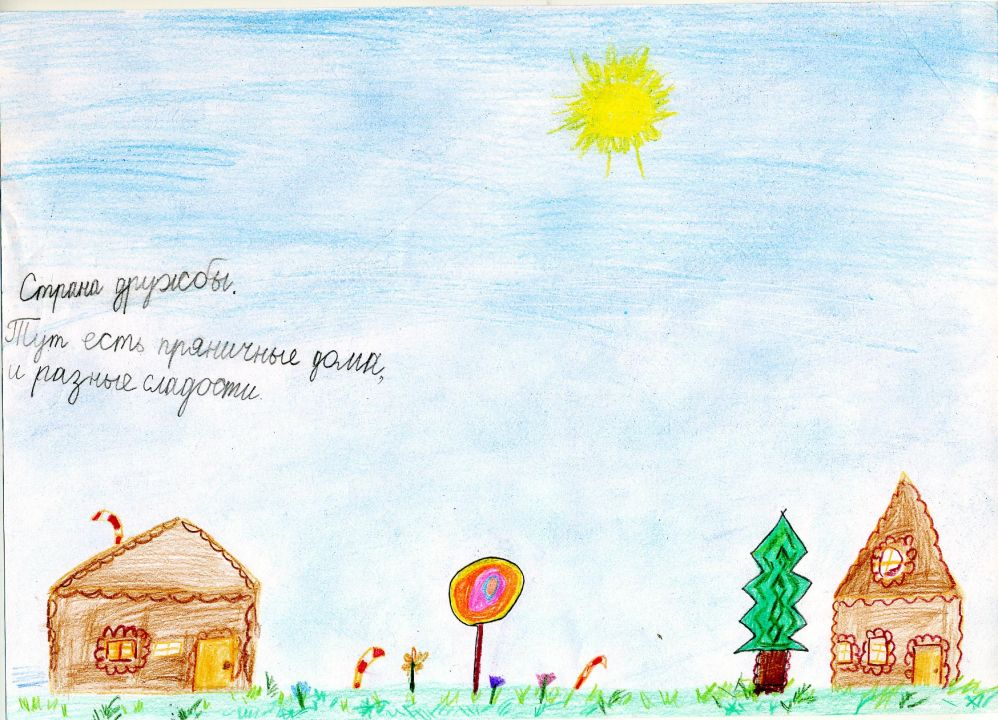 Страна дружбы.
Тут есть пряничные дома,
и разные сладости.